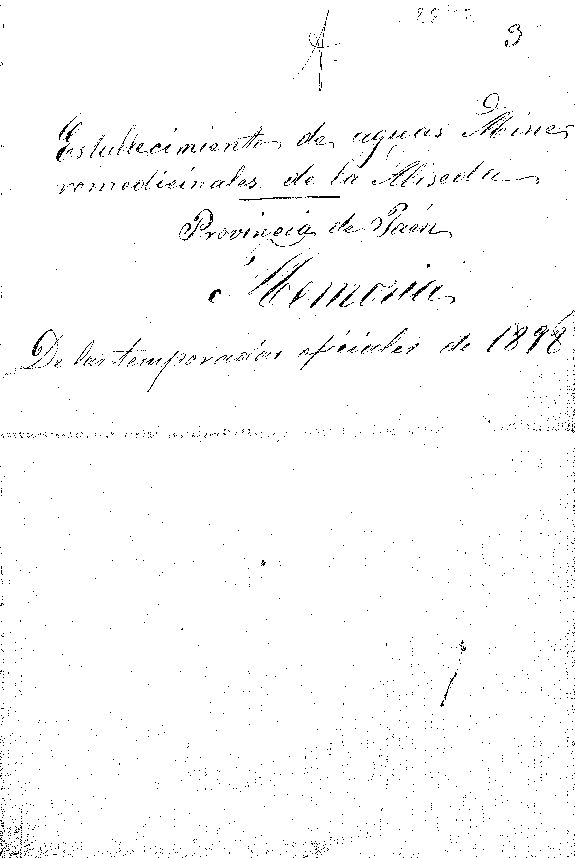 A.
3
Establecimiento de aguas Mine
romedicinales de la Aliseda
Provincia de Jaén
Memoria
De las temporadas oficiales de 1898